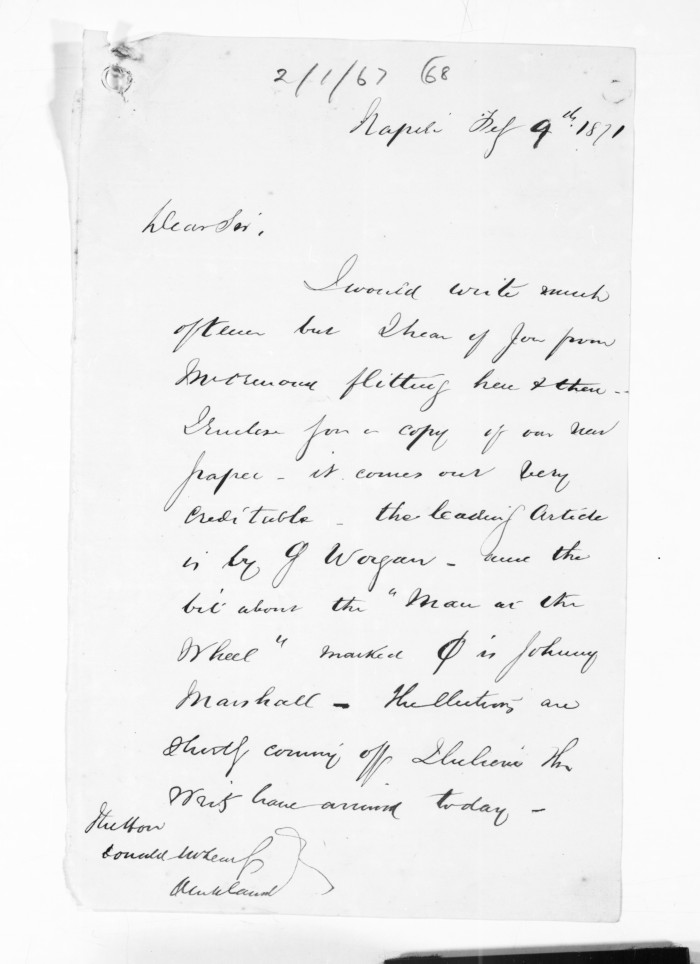 2/1/67 68
Napier Feby 9th 1871
Dear Sir,
I would write much
oftener but I hear of you from
McDermond flitting here & there -
I Enclose you a copy of our new
paper - it comes out very
creditable - the leading Article
is by G Worgan - and the
bit about the "Man at the
Wheel" marked Φ is Johnny
Marshall - The Elections are
shortly coming off I believe the
Writs have arrived today -
The Hon
Donald McLean
Auckland